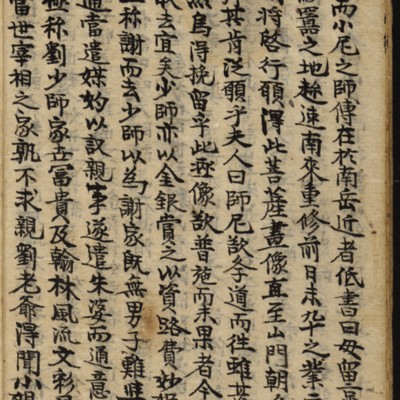 而小尼之師傅在於南岳近者低書曰毋留
囂之地趂速南來重修前日未九十之業
將啓行願擇此菩薩畫像直至山門朝
其肯泛願乎夫人曰師尼欲奉道而徃雖
烏得挽留乎此畫像欲普施而未果者今
去宜矣少師亦以金銀賞之以資路費妙
称謝而去少師以為謝家旣無男子難
通當遣媒妁以議親事遂遣朱婆而通意
極称劉少師家世冨貴及翰林風流文彩
當世宰相之家孰不求親劉老爺得聞小